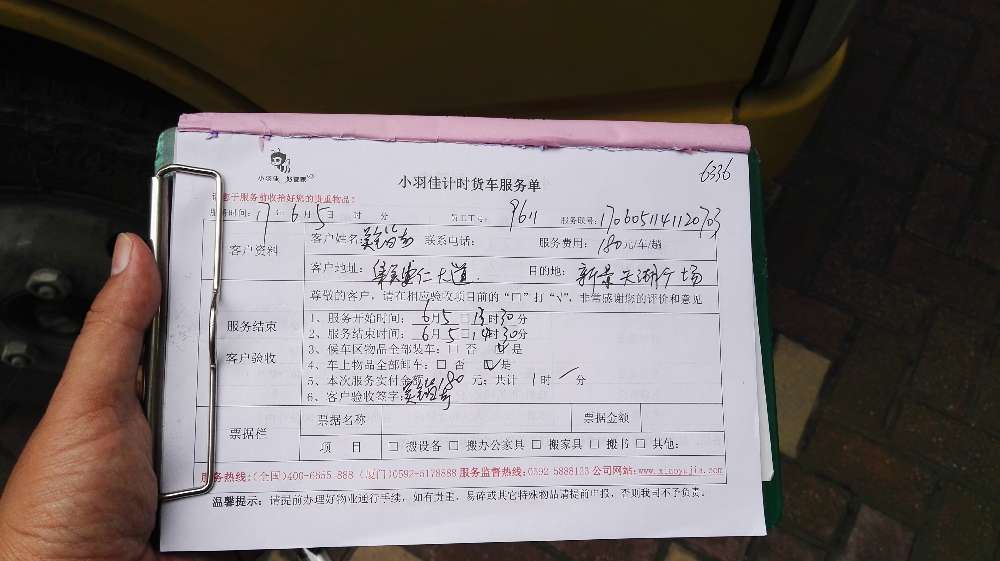 6336
小羽佳
小羽佳计时货车服务单
请您于服务前收拾好您的贵重物品！
服务时间：17年6月5日 时 分 员工工号：9611 服务联号：1706051141120703
客户资料
客户姓名： 联系电话： 服务费用：180元/车/趟
客户地址： 大道 目的地：新景天湖广场
尊敬的客户，请在相应验收项目前的“口”打“√”，非常感谢您的评价和意见
服务结束
客户验收
1、服务开始时间：6月5日13时30分
2、服务结束时间：6月5日14时30分
3、候车区物品全部装车：□ 否 ☑是
4、车上物品全部卸车：□ 否 ☑是
5、本次服务实付金额：180元；共计 1时 分
6、客户验收签字：
票据栏
票据名称 票据金额
项 目 □ 搬设备 □ 搬办公家具 □ 搬家具 □ 搬书 □ 其他：
服务热线：(全国)400-6855 888 (厦门)0592-5178888 服务监督热线：0592 5888123 公司网站：www.xiaoyujia.com
温馨提示：请提前办理好物业通行手续，如有贵重、易碎或其它特殊物品请提前申报，否则我司不予负责。